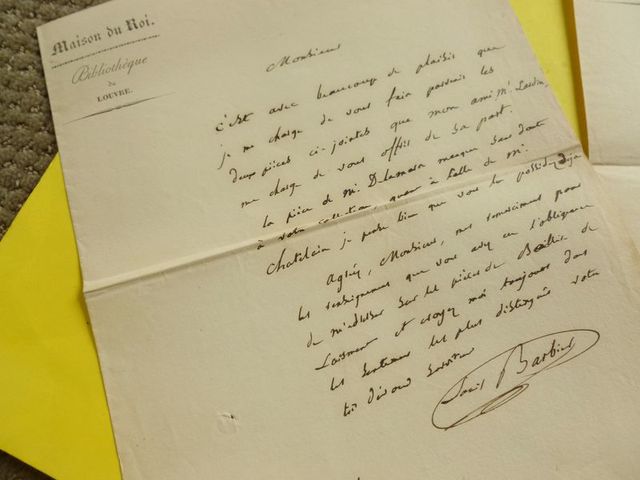 Maison du Roi.
Bibliothèque
du
LOUVRE.
Monsieur
C'est avec beaucoup de plaisir que
je me charge de vous faire parvenir les
deux pièces ci-jointes que mon ami Mr.
me charge de vous offrir de sa part.
La pièce de Mr. Delamara manque sans doute
à votre collection, quant à celle de Mr.
Chatelain je pense bien que vous la possédez déjà
Agréez, Monsieur, mes remerciments pour
les renseignemens que vous avez eu l'obligeance
de m'adresser sur les pièces de de
Laismont et croyez moi toujours dans
les sentimens les plus distingués votre
très dévoué serviteur
Louis Barbier